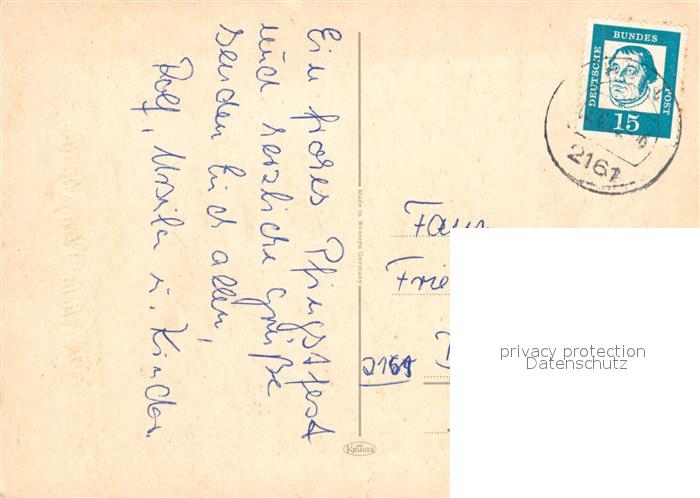 Ein frohes Pfingstfest
und herzliche Grüße
senden Euch allen,
Rolf, Ursula u. Kinder
Made in Western Germany
KRÜGER
DEUTSCHE BUNDESPOST
15
2161
Fam
Frie
2161
privacy protection
Datenschutz